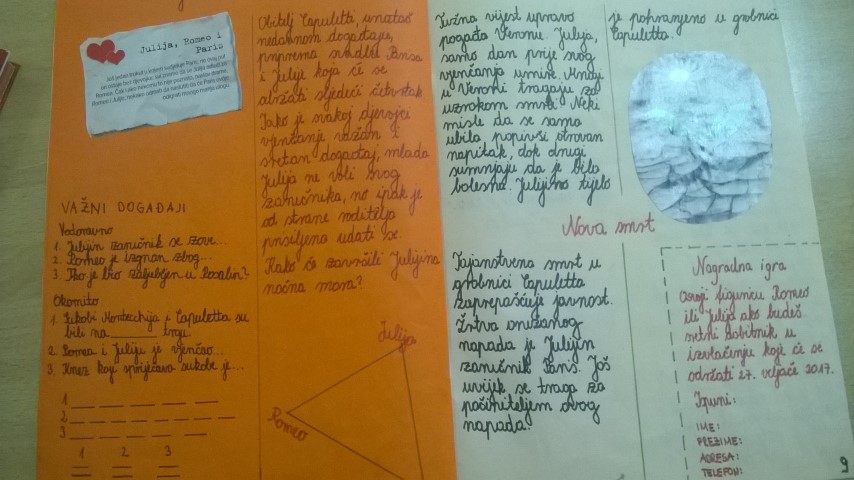 Julija, Romeo i
Paris
VAŽNI DOGAĐAJI
Vodoravno
1. Julijin zaručnik se zove...
2. Romeo je izgnan zbog...
3. Tko je bio zaljubljen u Rosalin?
Okomito
1. Sukobi Montecchija i Capuletta su
bili na ______ trgu.
2. Romea i Juliju je vjenčao...
3. Knez koji sprječava sukobe je...
1
2
3
1 2 3
Obitelj Capuletti, unatoč
nedavnom događaju,
priprema svadbu Parisa
i Julije koja će se
održati sljedeći četvrtak
Iako je svakoj djevojci
vjenčanje važan i
sretan događaj, mlada
Julija ne voli svog
zaručnika, no ipak je
od strane roditelja
prisiljena udati se.
Kako će završiti Julijina
noćna mora?
Julija
Romeo
Tužna vijest upravo
pogađa Veronu. Julija,
samo dan prije svog
vjenčanja umire. Mnogi
u Veroni tragaju za
uzrokom smrti. Neki
misle da se sama
ubila popivši otrovan
napitak, dok drugi
sumnjaju da je bila
bolesna. Julijino tijelo
je pohranjeno u grobnici
Capuletta.
Nova smrt
Tajanstvena smrt u
grobnici Capuletta
zaprepašćuje javnost.
Žrtva
napada je Julijin
zaručnik Paris. Još
uvijek se traga za
počiniteljem ovog
napada.
Nagradna igra
Osvoji figuricu Romeo
ili Julija ako budeš
sretni dobitnik u
izvlačenju koje će se
održati 27. veljače 2017.
Ispuni:
IME:
PREZIME:
ADRESA:
TELEFON:
9